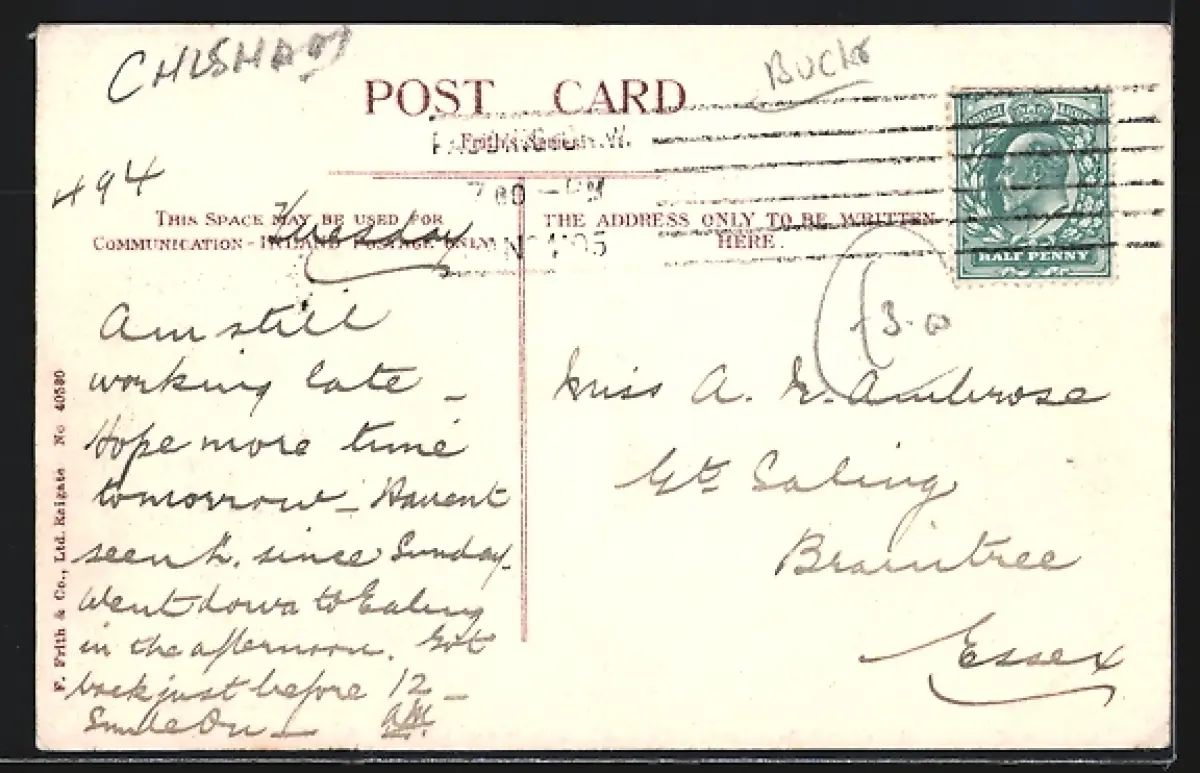 CHISHAM
BUCKS
POST CARD
Frith's Series
494
7 60 - PM
THIS SPACE MAY BE USED FOR
COMMUNICATION - INLAND POSTAGE ONLY
THE ADDRESS ONLY TO BE WRITTEN
HERE.
HALF PENNY
Tuesday
Am still
working late -
Hope more time
tomorrow - Havent
seen h. since Sunday.
Went down to Ealing
in the afternoon. Got
back just before 12 -
AM.
3.0
Miss A. E. Ambrose
Gt. Saling
Braintree
Essex
F. Frith & Co., Ltd. Reigate No 40580